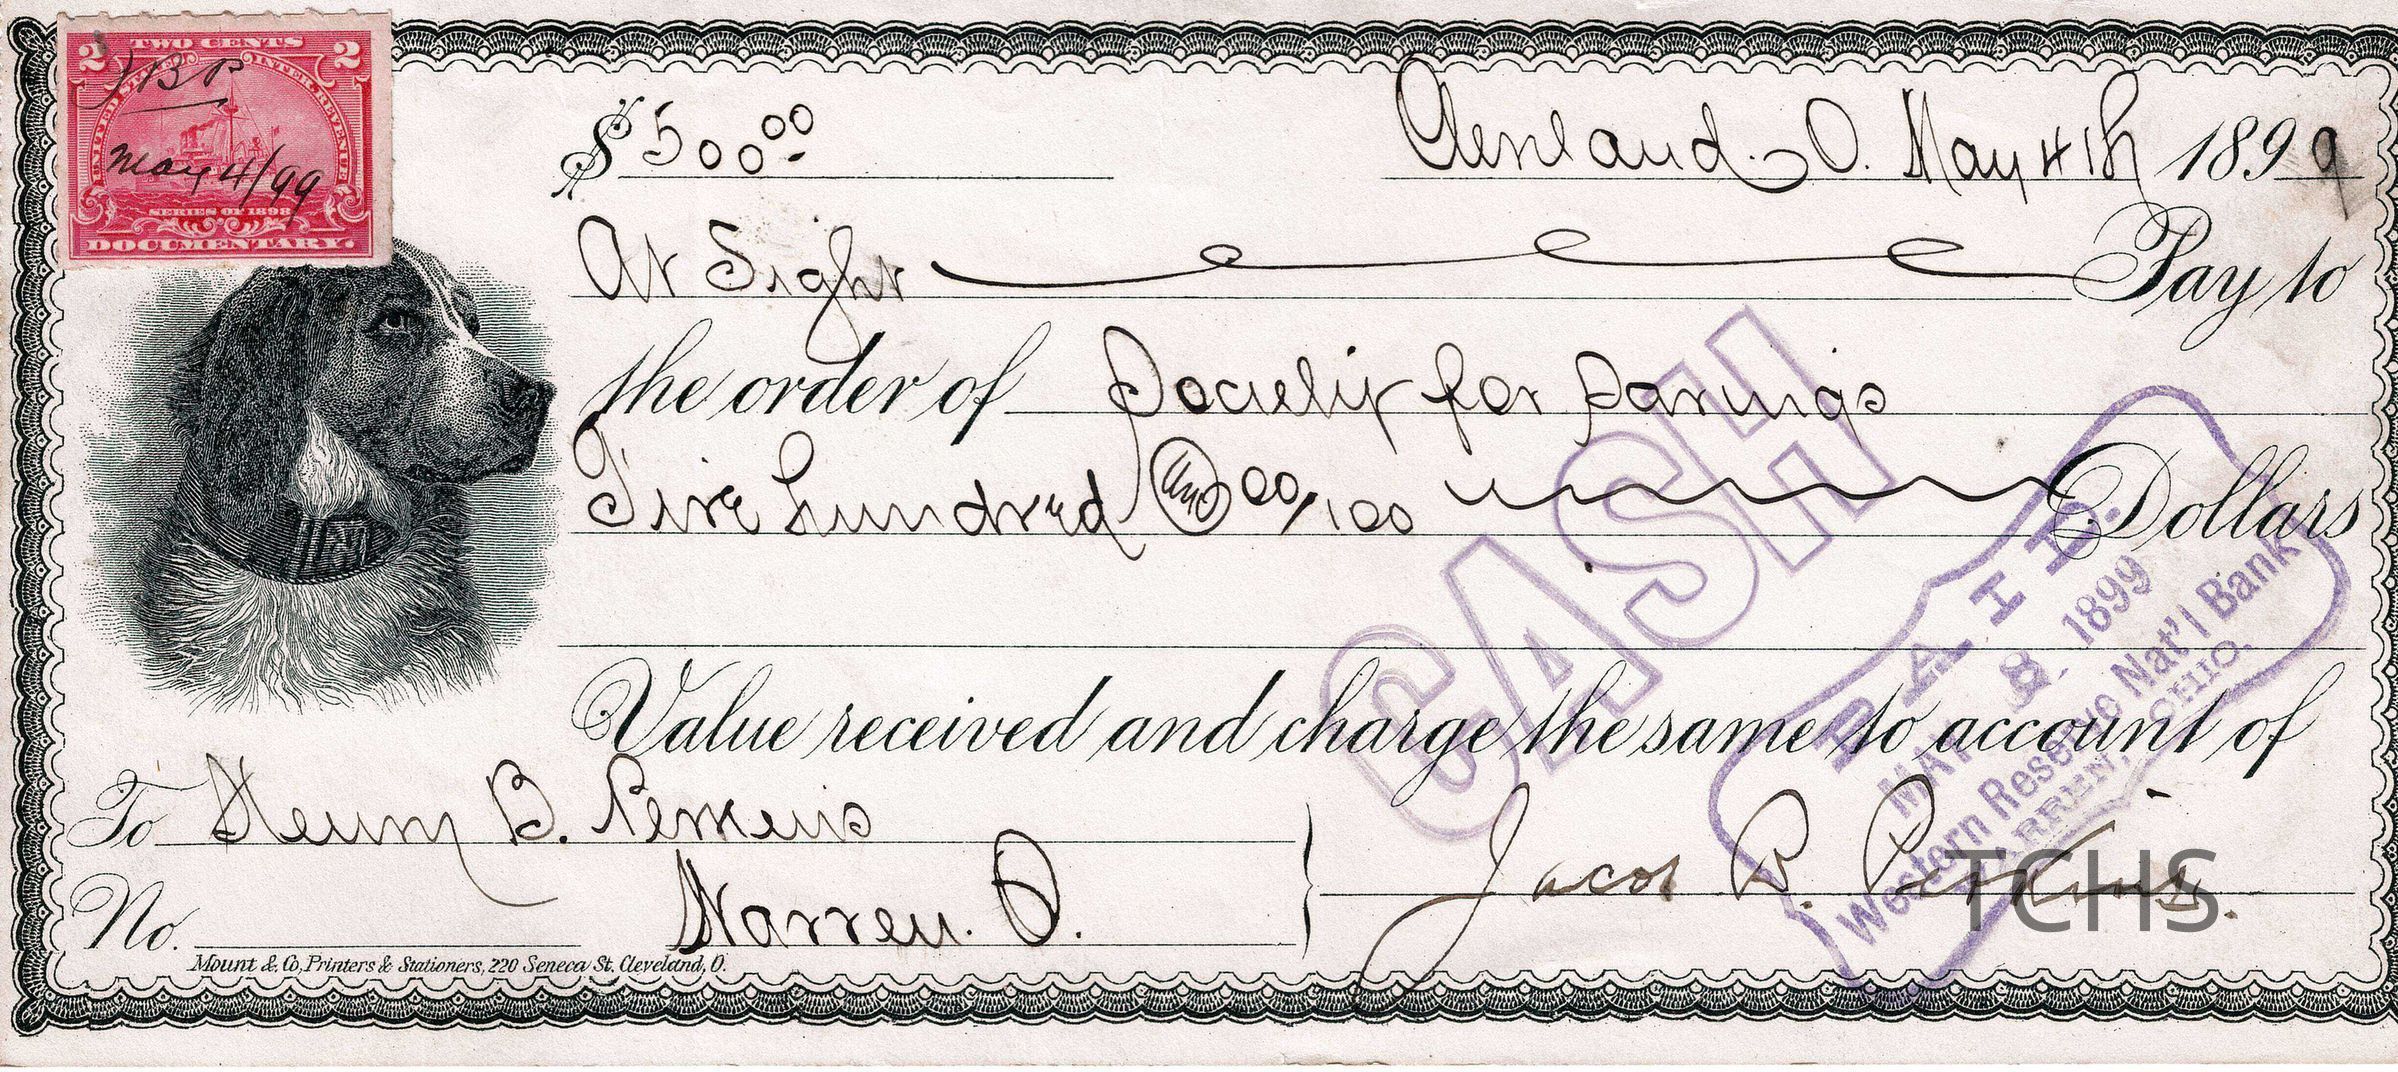 2 TWO CENTS 2
UNITED STATES INTER. REVENUE
JBP
May 4/99
SERIES OF 1898
DOCUMENTARY.
$500.00 Cleveland. O. May 4th 1899
At Sight Pay to
the order of Society for Savings
Five hundred and 00/100 Dollars
CASH
PAID.
MAY 8. 1899
Western Reserve Nat'l Bank
WARREN, OHIO.
Value received and charge the same to account of
To Henry B. Perkins
Warren. O.
Jacob B. Perkins.
No.
Mount & Co, Printers & Stationers, 220 Seneca St. Cleveland, O.
TCHS